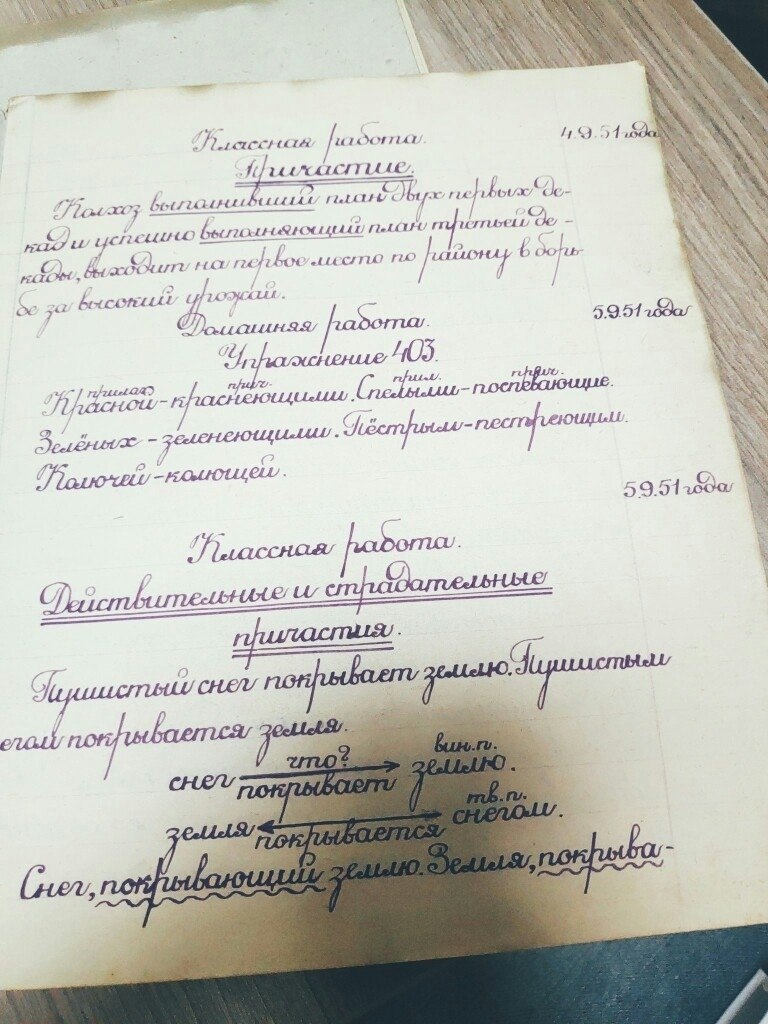 4.9.51 года
Классная работа.
Причастие.
Колхоз выполнивший план двух первых де-
кад и успешно выполняющий план третьей де-
кады, выходит на первое место по району в борь-
бе за высокий урожай.
5.9.51 года
Домашняя работа.
Упражнение 403.
прилаг. прич. прил. прич.
Красной - краснеющими. Спелыми - поспевающие.
Зелёных - зеленеющими. Пёстрым - пестреющим.
Колючей - колющей.
5.9.51 года
Классная работа.
Действительные и страдательные
причастия.
Пушистый снег покрывает землю. Пушистым
егом покрывается земля.
что? вин.п.
снег покрывает землю.
тв.п.
земля покрывается снегом.
Снег, покрывающий землю. Земля, покрыва-